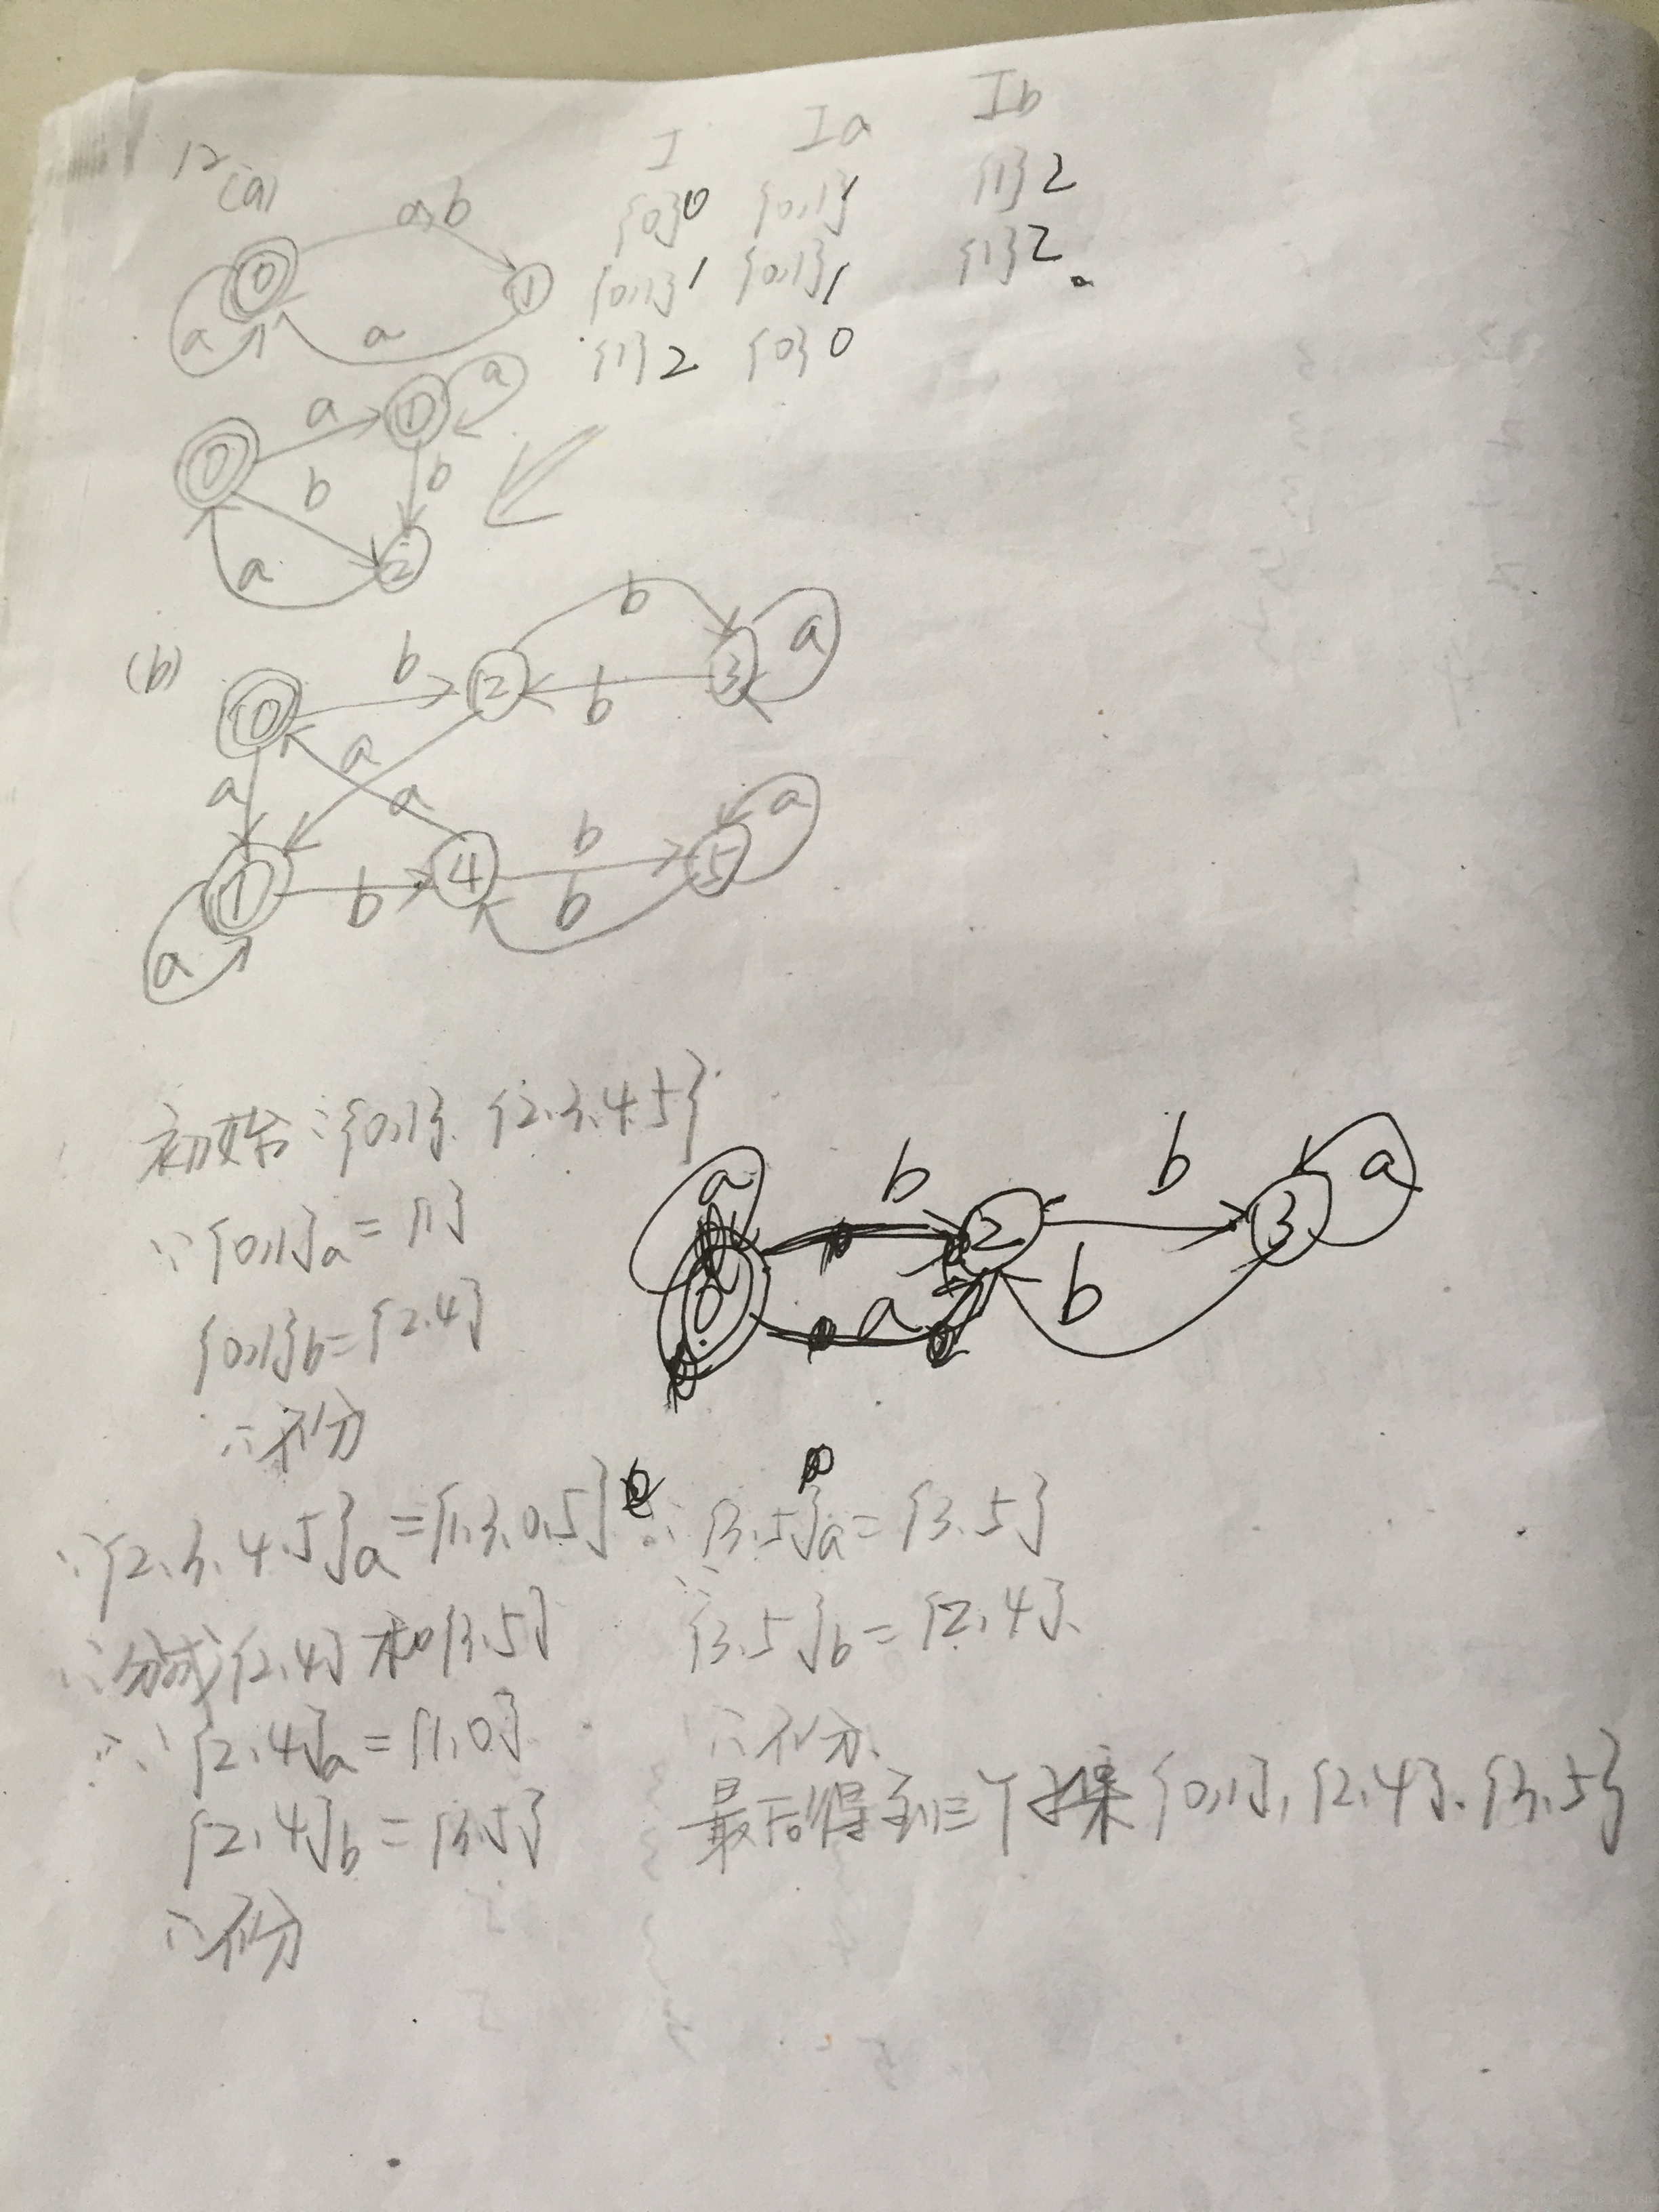 12
(a)
I Ia Ib
{0}0 {0,1}1 {1}2
{0,1}1 {0,1}1 {1}2
{1}2 {0}0
a,b
0 1
a a
a 1 a
0 b b
a 2
(b)
b
0 b 2 b 3 a
a a a
1 b 4 b b 5 a
a
初始:{0,1}. {2.3.4.5}
∵{0,1}a={1}
{0,1}b={2.4}
∴不分
a b b a
0 a 2 b 3
∵{2.3.4.5}a={1.3.0.5}
∴分成{2.4}和{3.5}
∵{2.4}a={1.0}
{2.4}b={3.5}
∴不分
∵{3.5}a={3.5}
{3.5}b={2.4}.
∴不分.
最后得到三个子集{0,1}, {2.4}. {3.5}